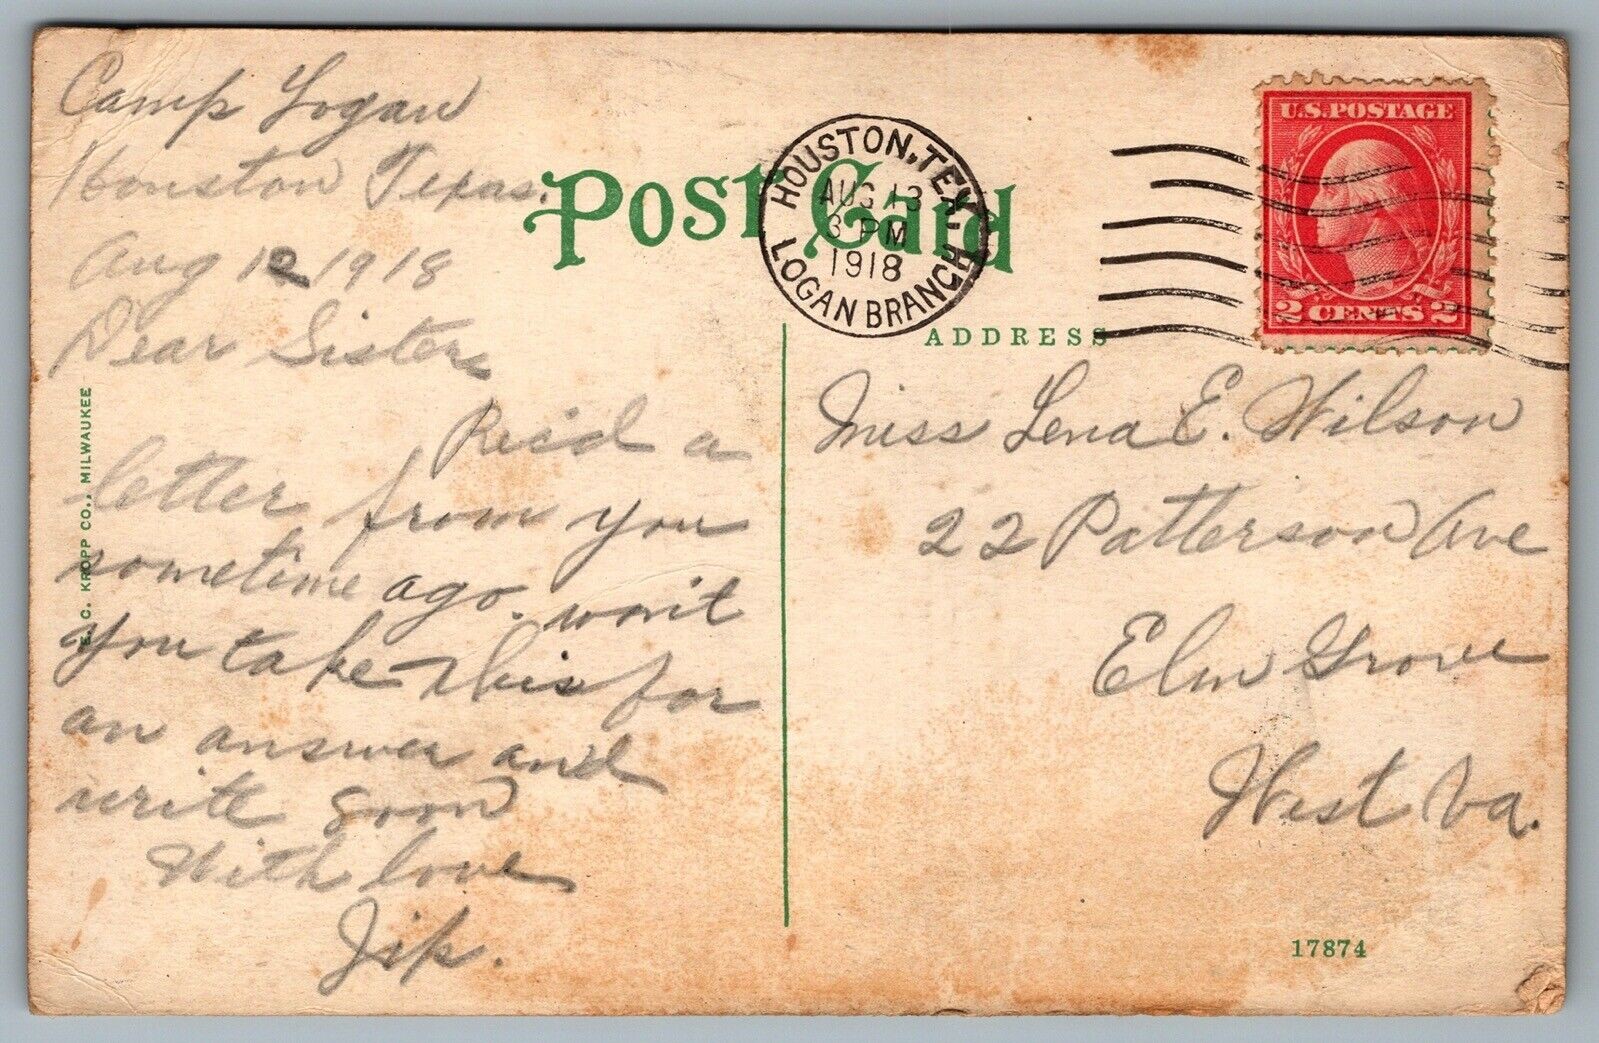 Camp Logan
Houston Texas.
Aug 12 1918
Dear Sister
Rec'd a
letter from you
sometime ago. won't
you take this for
an answer and
write soon
With love
Jip.
E. C. KROPP CO., MILWAUKEE
POST CARD
HOUSTON, TEX.
AUG 13
3 PM
1918
LOGAN BRANCH
U.S. POSTAGE
2 CENTS 2
ADDRESS
Miss Lena E. Wilson
22 Patterson Ave
Elm Grove
West Va.
17874